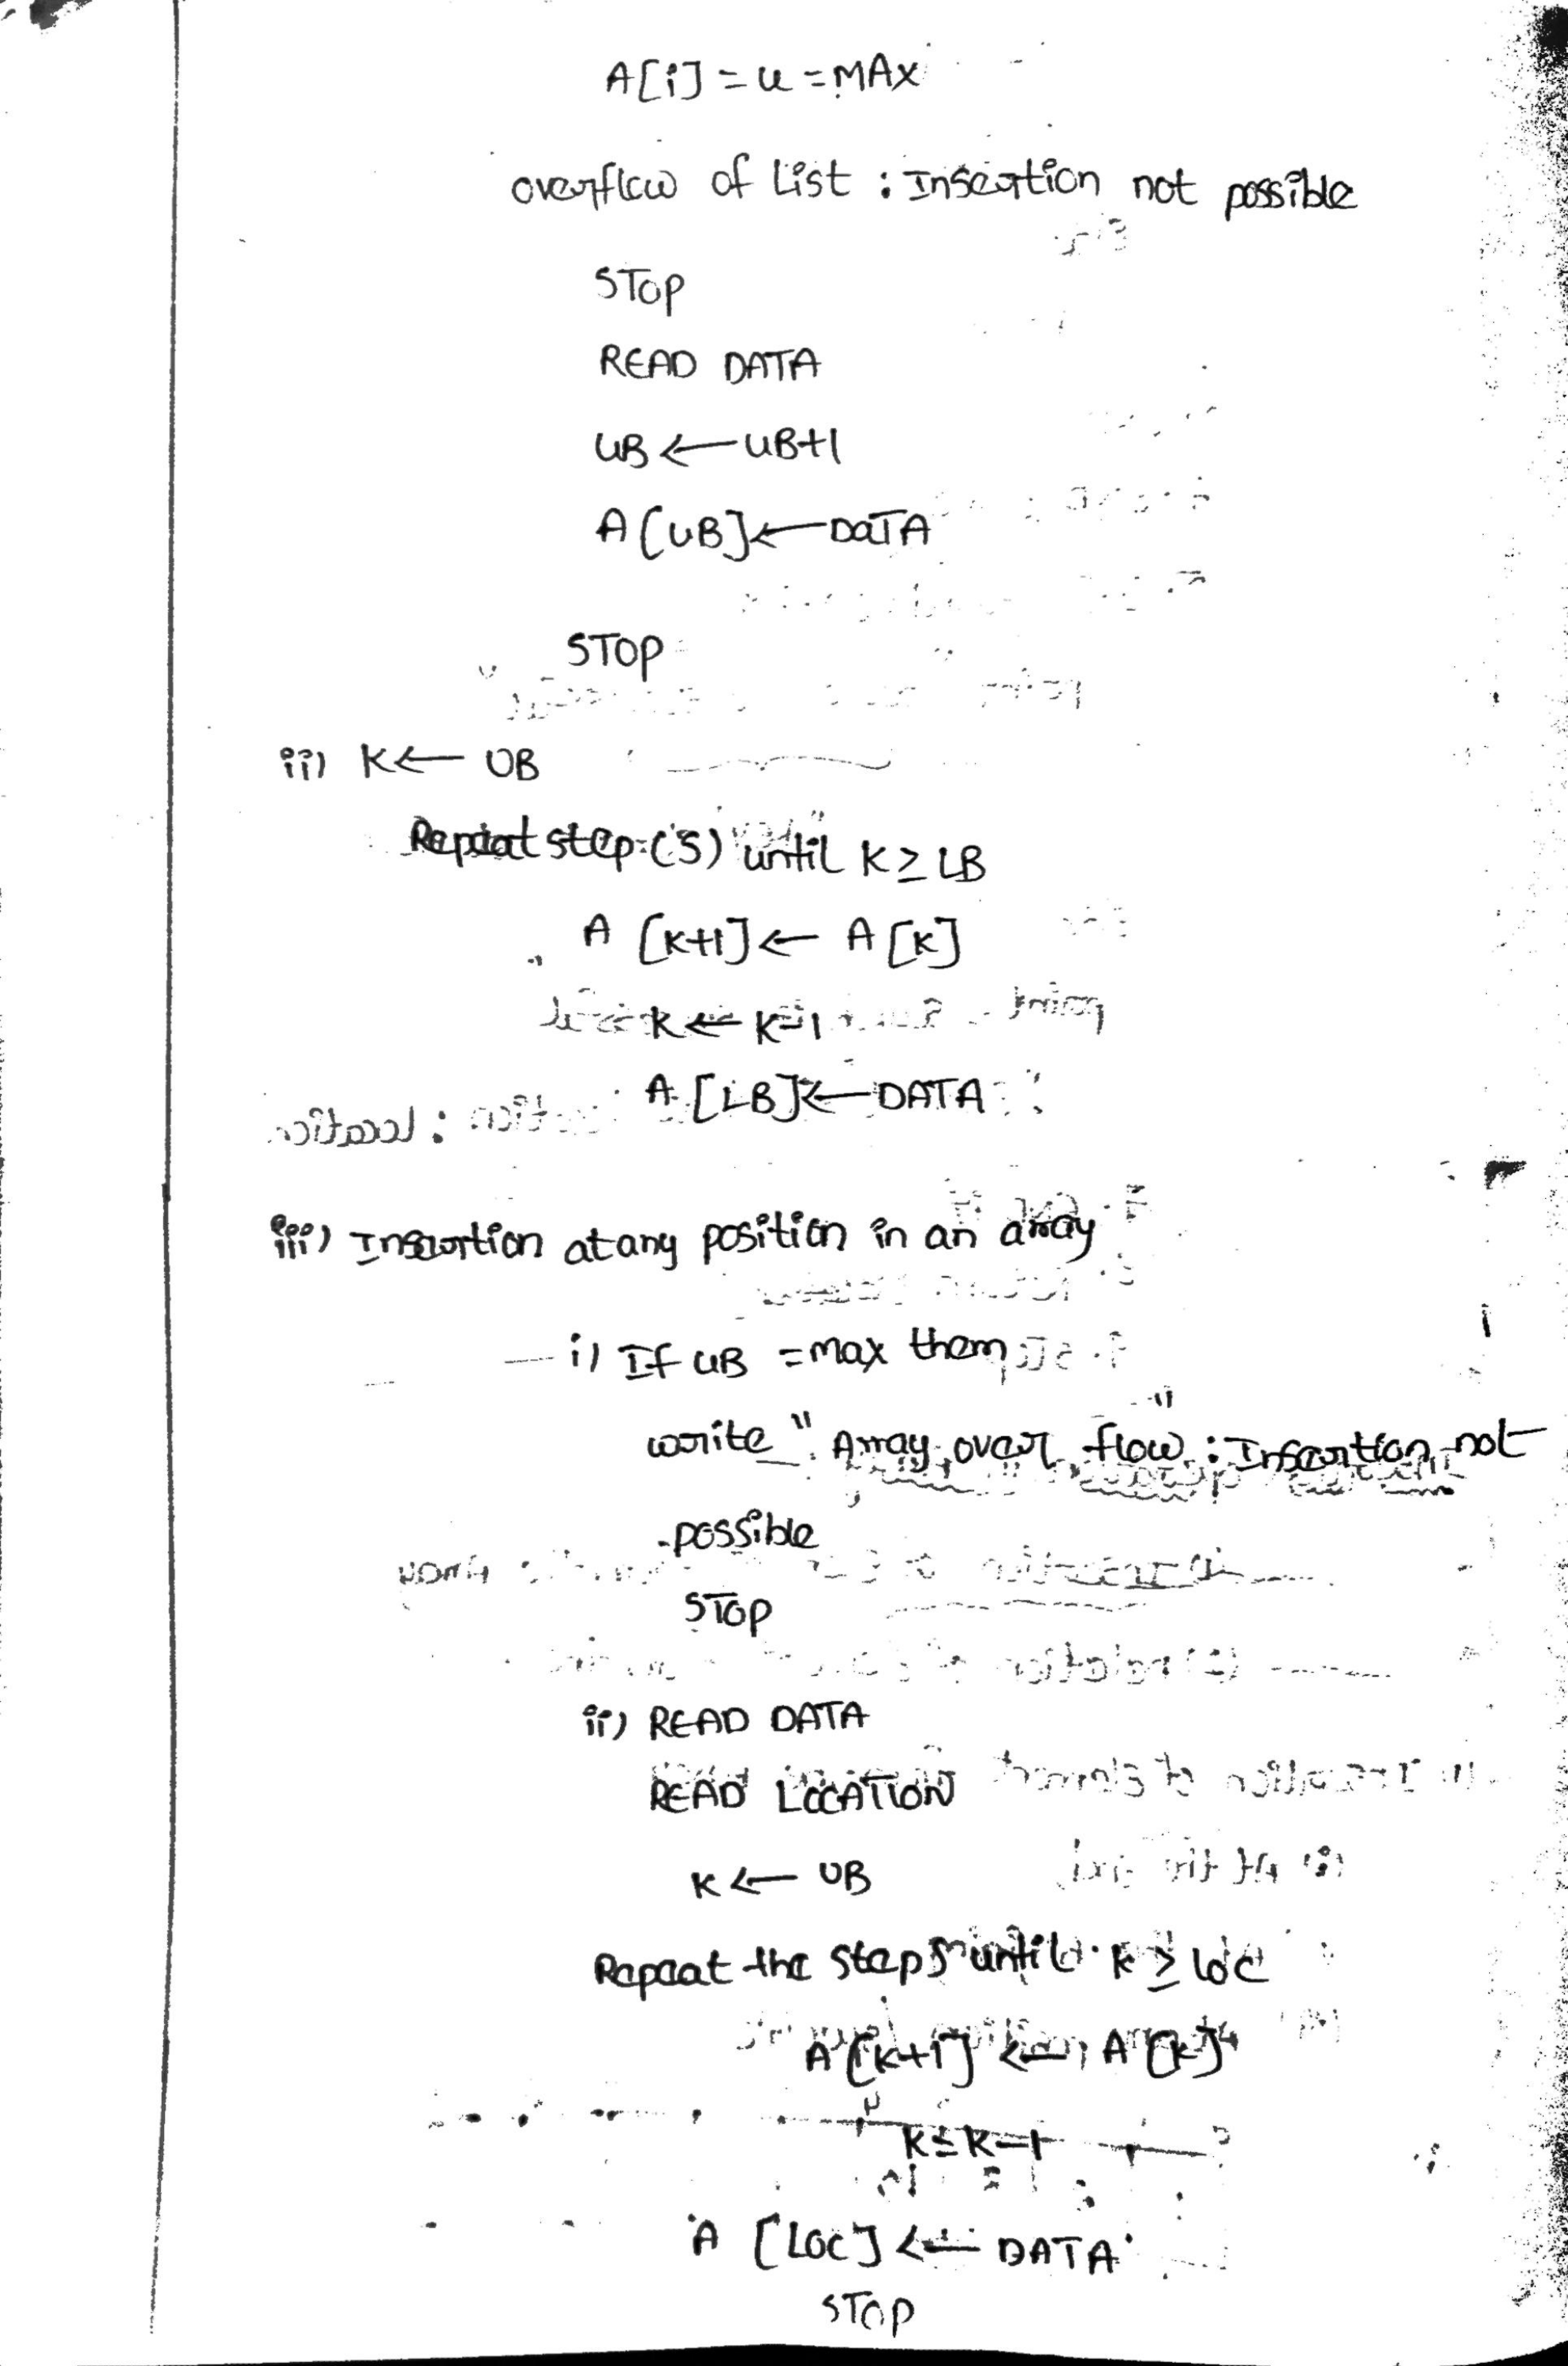 A[i] = u = MAX
overflow of List : Insertion not possible
STOP
READ DATA
UB ← UB+1
A[UB] ← DaTA
STOP
ii) K ← UB
Repeat step (5) until K ≥ LB
A [K+1] ← A[K]
K ← K-1
A [LB] ← DATA
iii) Insertion at any position in an array
i) If UB = max them
write " Array over flow " : Insertion not
possible
STOP
ii) READ DATA
READ LOCATION
K ← UB
Repeat the step 5 until K ≥ LOC
A[K+1] ← A[K]
K ≤ K-1
A [LOC] ← DATA
STOP